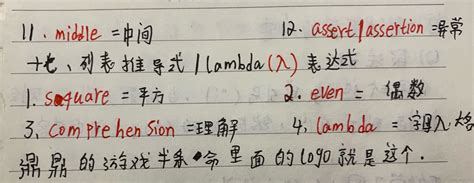 11. middle = 中间 12. assert / assertion = 异常
十七、列表推导式 / lambda(λ) 表达式
1. square = 平方 2. even = 偶数
3. comprehension = 理解 4. lambda = 字母入,大名
鼎鼎的游戏半条命里面的logo就是这个.